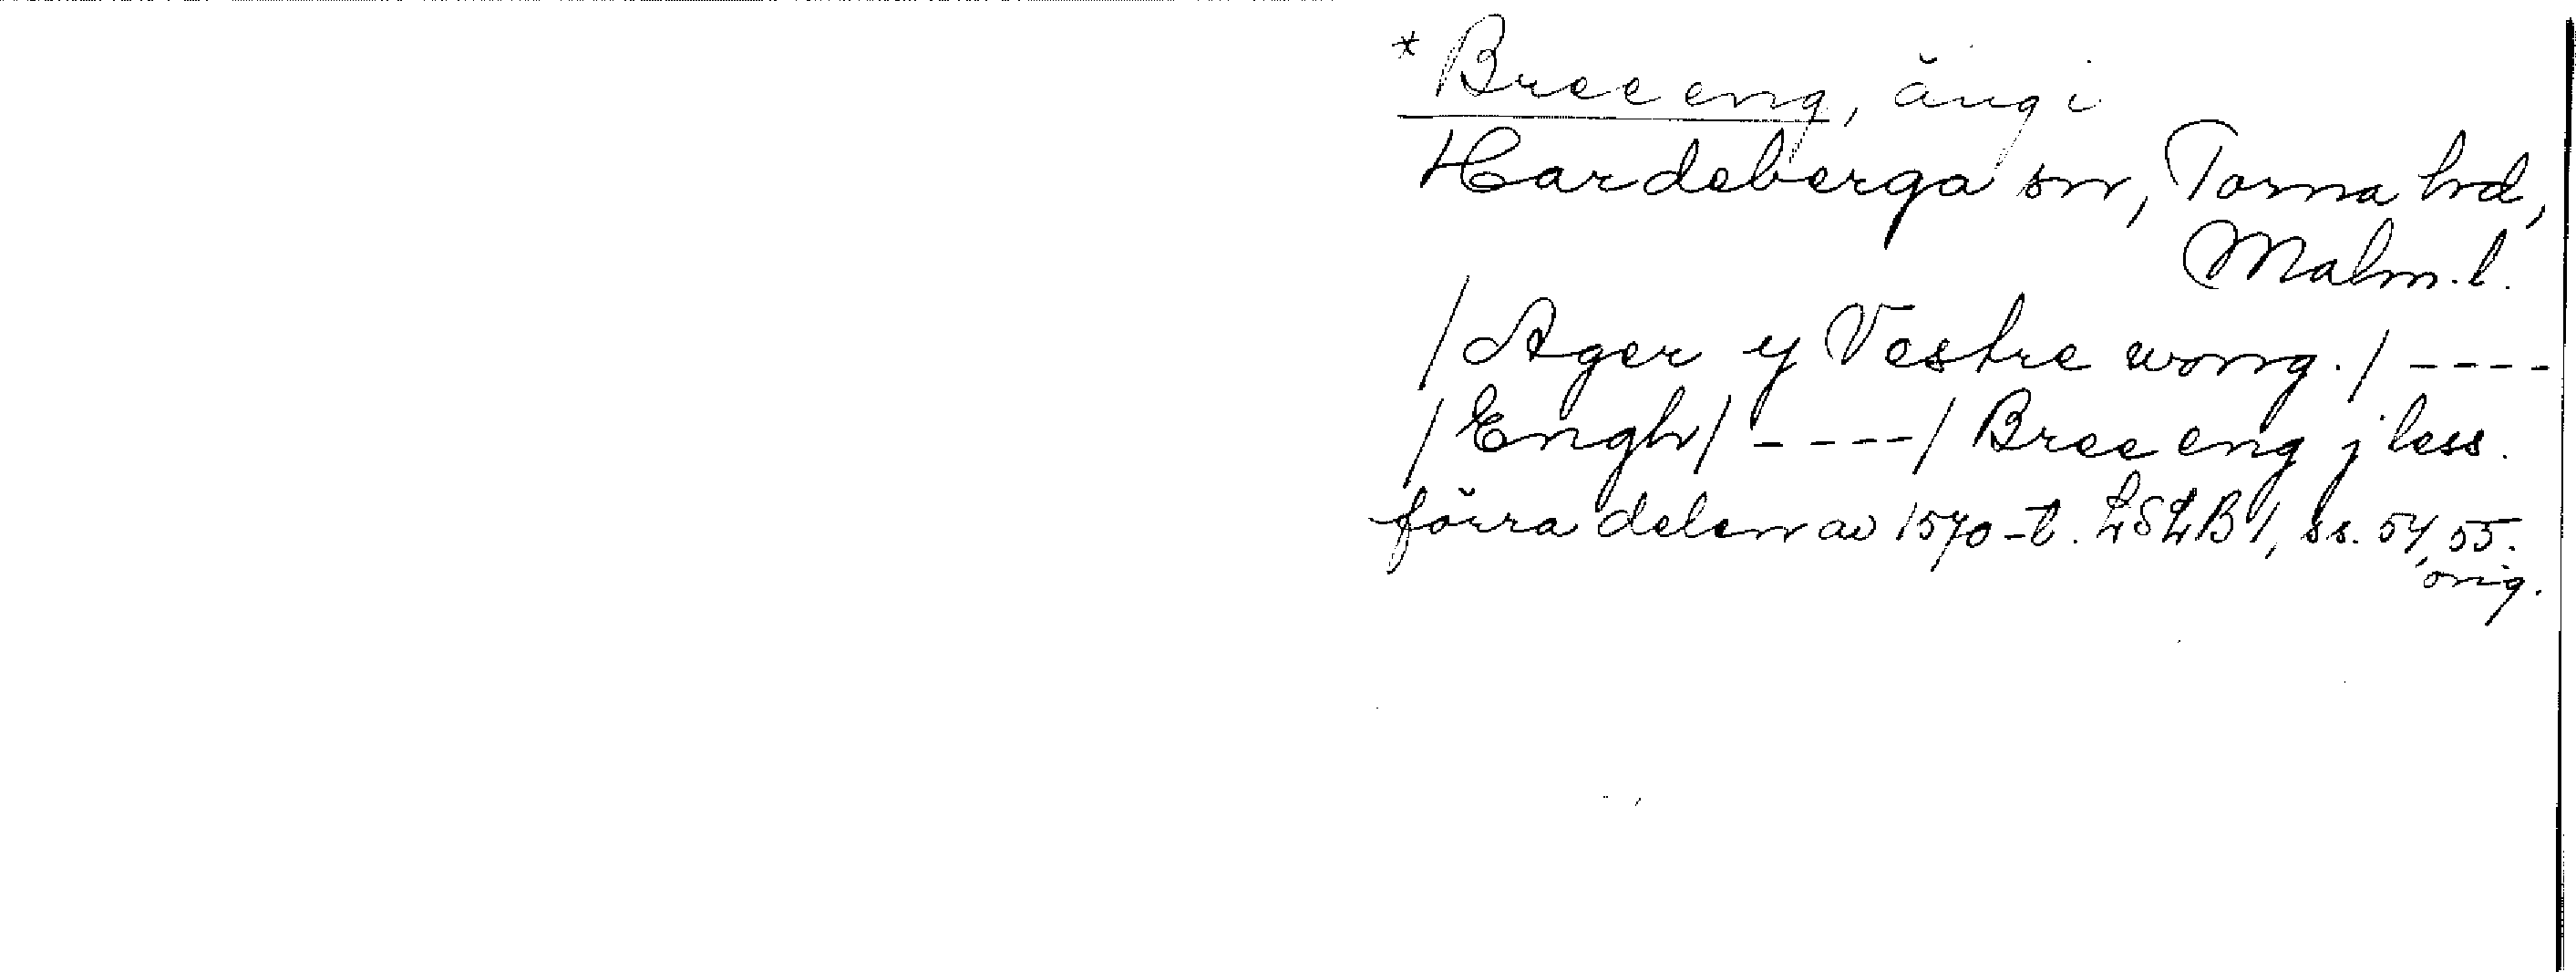 * Bree eng, äng i
Hardeberga sn, Torna hd,
Malm. l.
/ Ager y Vestre wong. / ----
/ Engh / ---- / Bree eng j less.
förra delen av 1570-t. LSLB 1, ss. 54, 55.
orig.